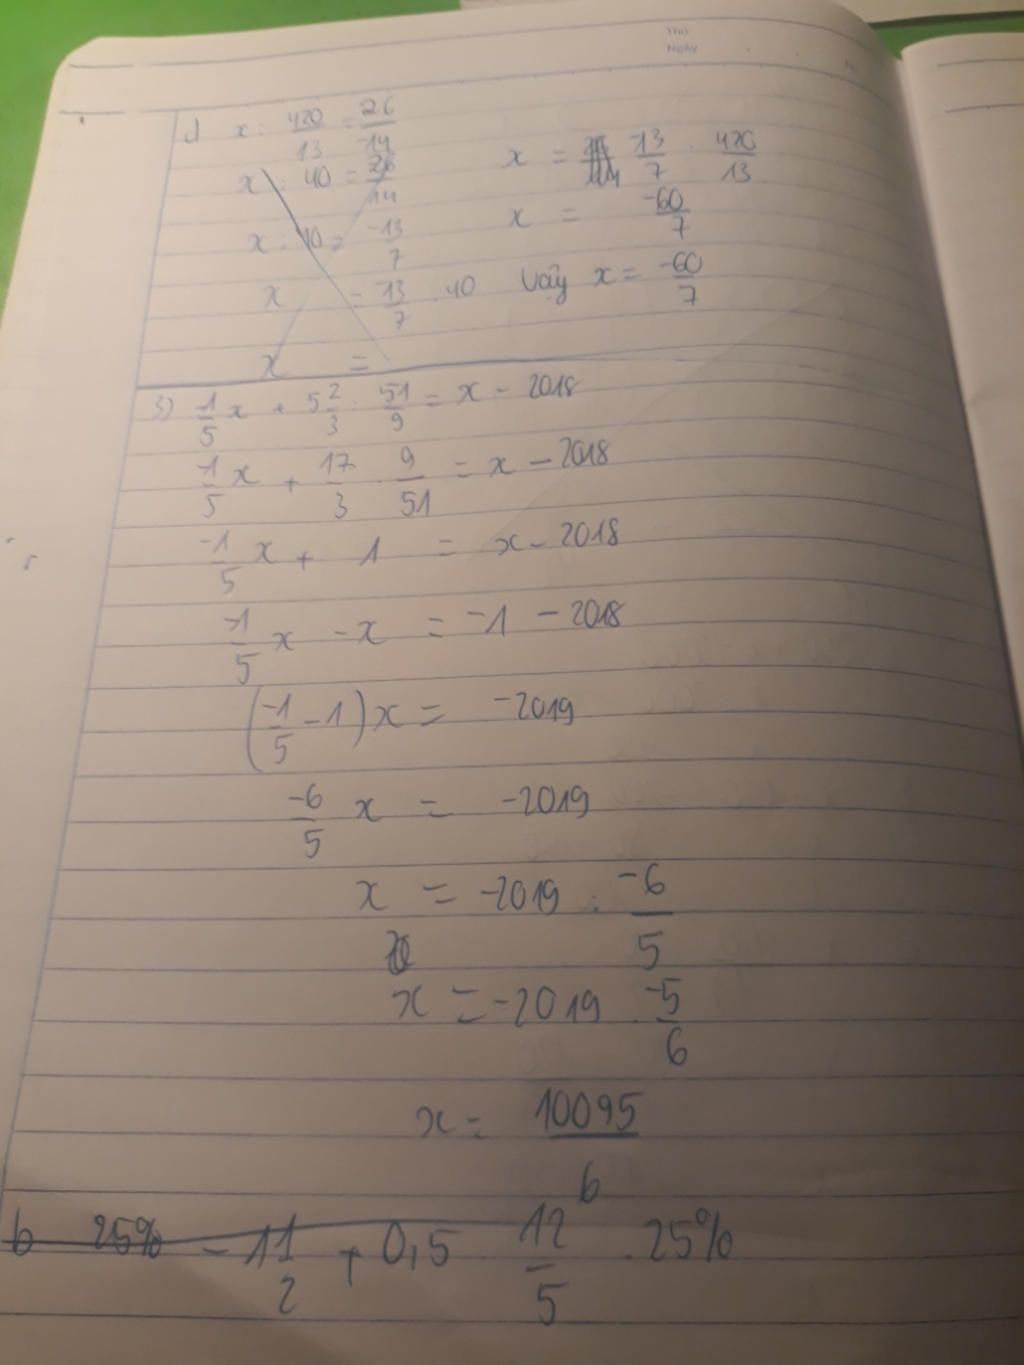 Thứ
Ngày
d x : 420/13 = 26/-14
x : 40 = 26/14
x : 40 = -13/7
x = 13/7 . 40
x =
x = 13/7 . 420/13
x = -60/7
Vậy x = -60/7
3) -1/5 x + 5 2/3 : 51/9 = x - 2018
-1/5 x + 17/3 . 9/51 = x - 2018
-1/5 x + 1 = x - 2018
-1/5 x - x = -1 - 2018
(-1/5 - 1) x = -2019
-6/5 x = -2019
x = -2019 : -6/5
x = -2019 . -5/6
x = 10095/6
b 25% - 11/2 + 0,5 . 12/5 . 25%